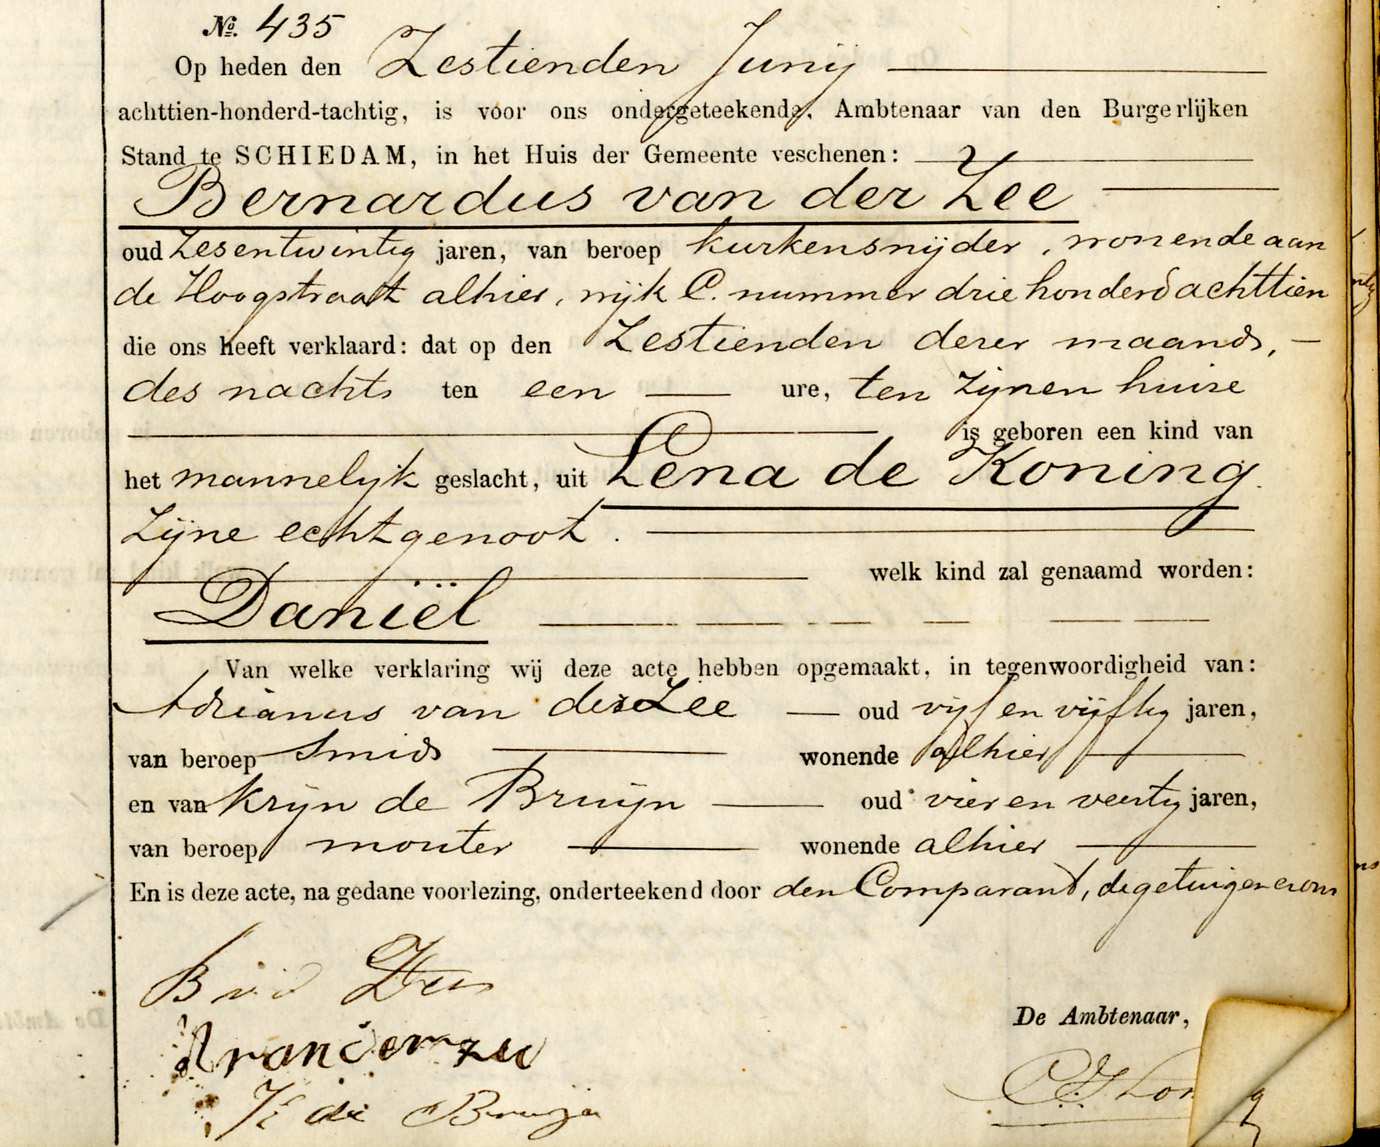 No. 435
Op heden den Zestienden Junij
achttien-honderd-tachtig, is voor ons ondergeteekende, Ambtenaar van den Burgerlijken
Stand te SCHIEDAM, in het Huis der Gemeente veschenen:
Bernardus van der Zee
oud Zesentwintig jaren, van beroep kurkensnijder, wonende aan
de Hoogstraat alhier, wijk C. nummer driehonderd achttien
die ons heeft verklaard: dat op den Zestienden dezer maand,
des nachts ten een ure, ten zijnen huize
is geboren een kind van
het mannelijk geslacht, uit Lena de Koning
zijne echtgenoot.
welk kind zal genaamd worden:
Daniël
Van welke verklaring wij deze acte hebben opgemaakt, in tegenwoordigheid van:
Adrianus van der Zee oud vijf en vijftig jaren,
van beroep smid wonende alhier
en van Krijn de Bruijn oud vier en veertig jaren,
van beroep mouter wonende alhier
En is deze acte, na gedane voorlezing, onderteekend door den Comparant, de getuigen en ons
B v d Zee
A van der zee
K de Bruijn
De Ambtenaar,